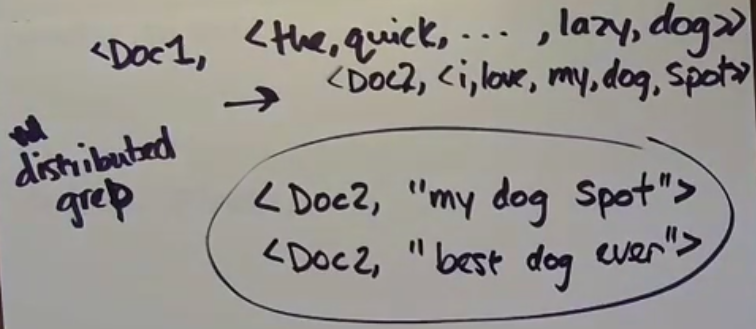 <Doc1, <the, quick, ... , lazy, dog>>
→ <Doc2, <i, love, my, dog, spot>>
distributed
grep
<Doc2, "my dog spot">
<Doc2, "best dog ever">